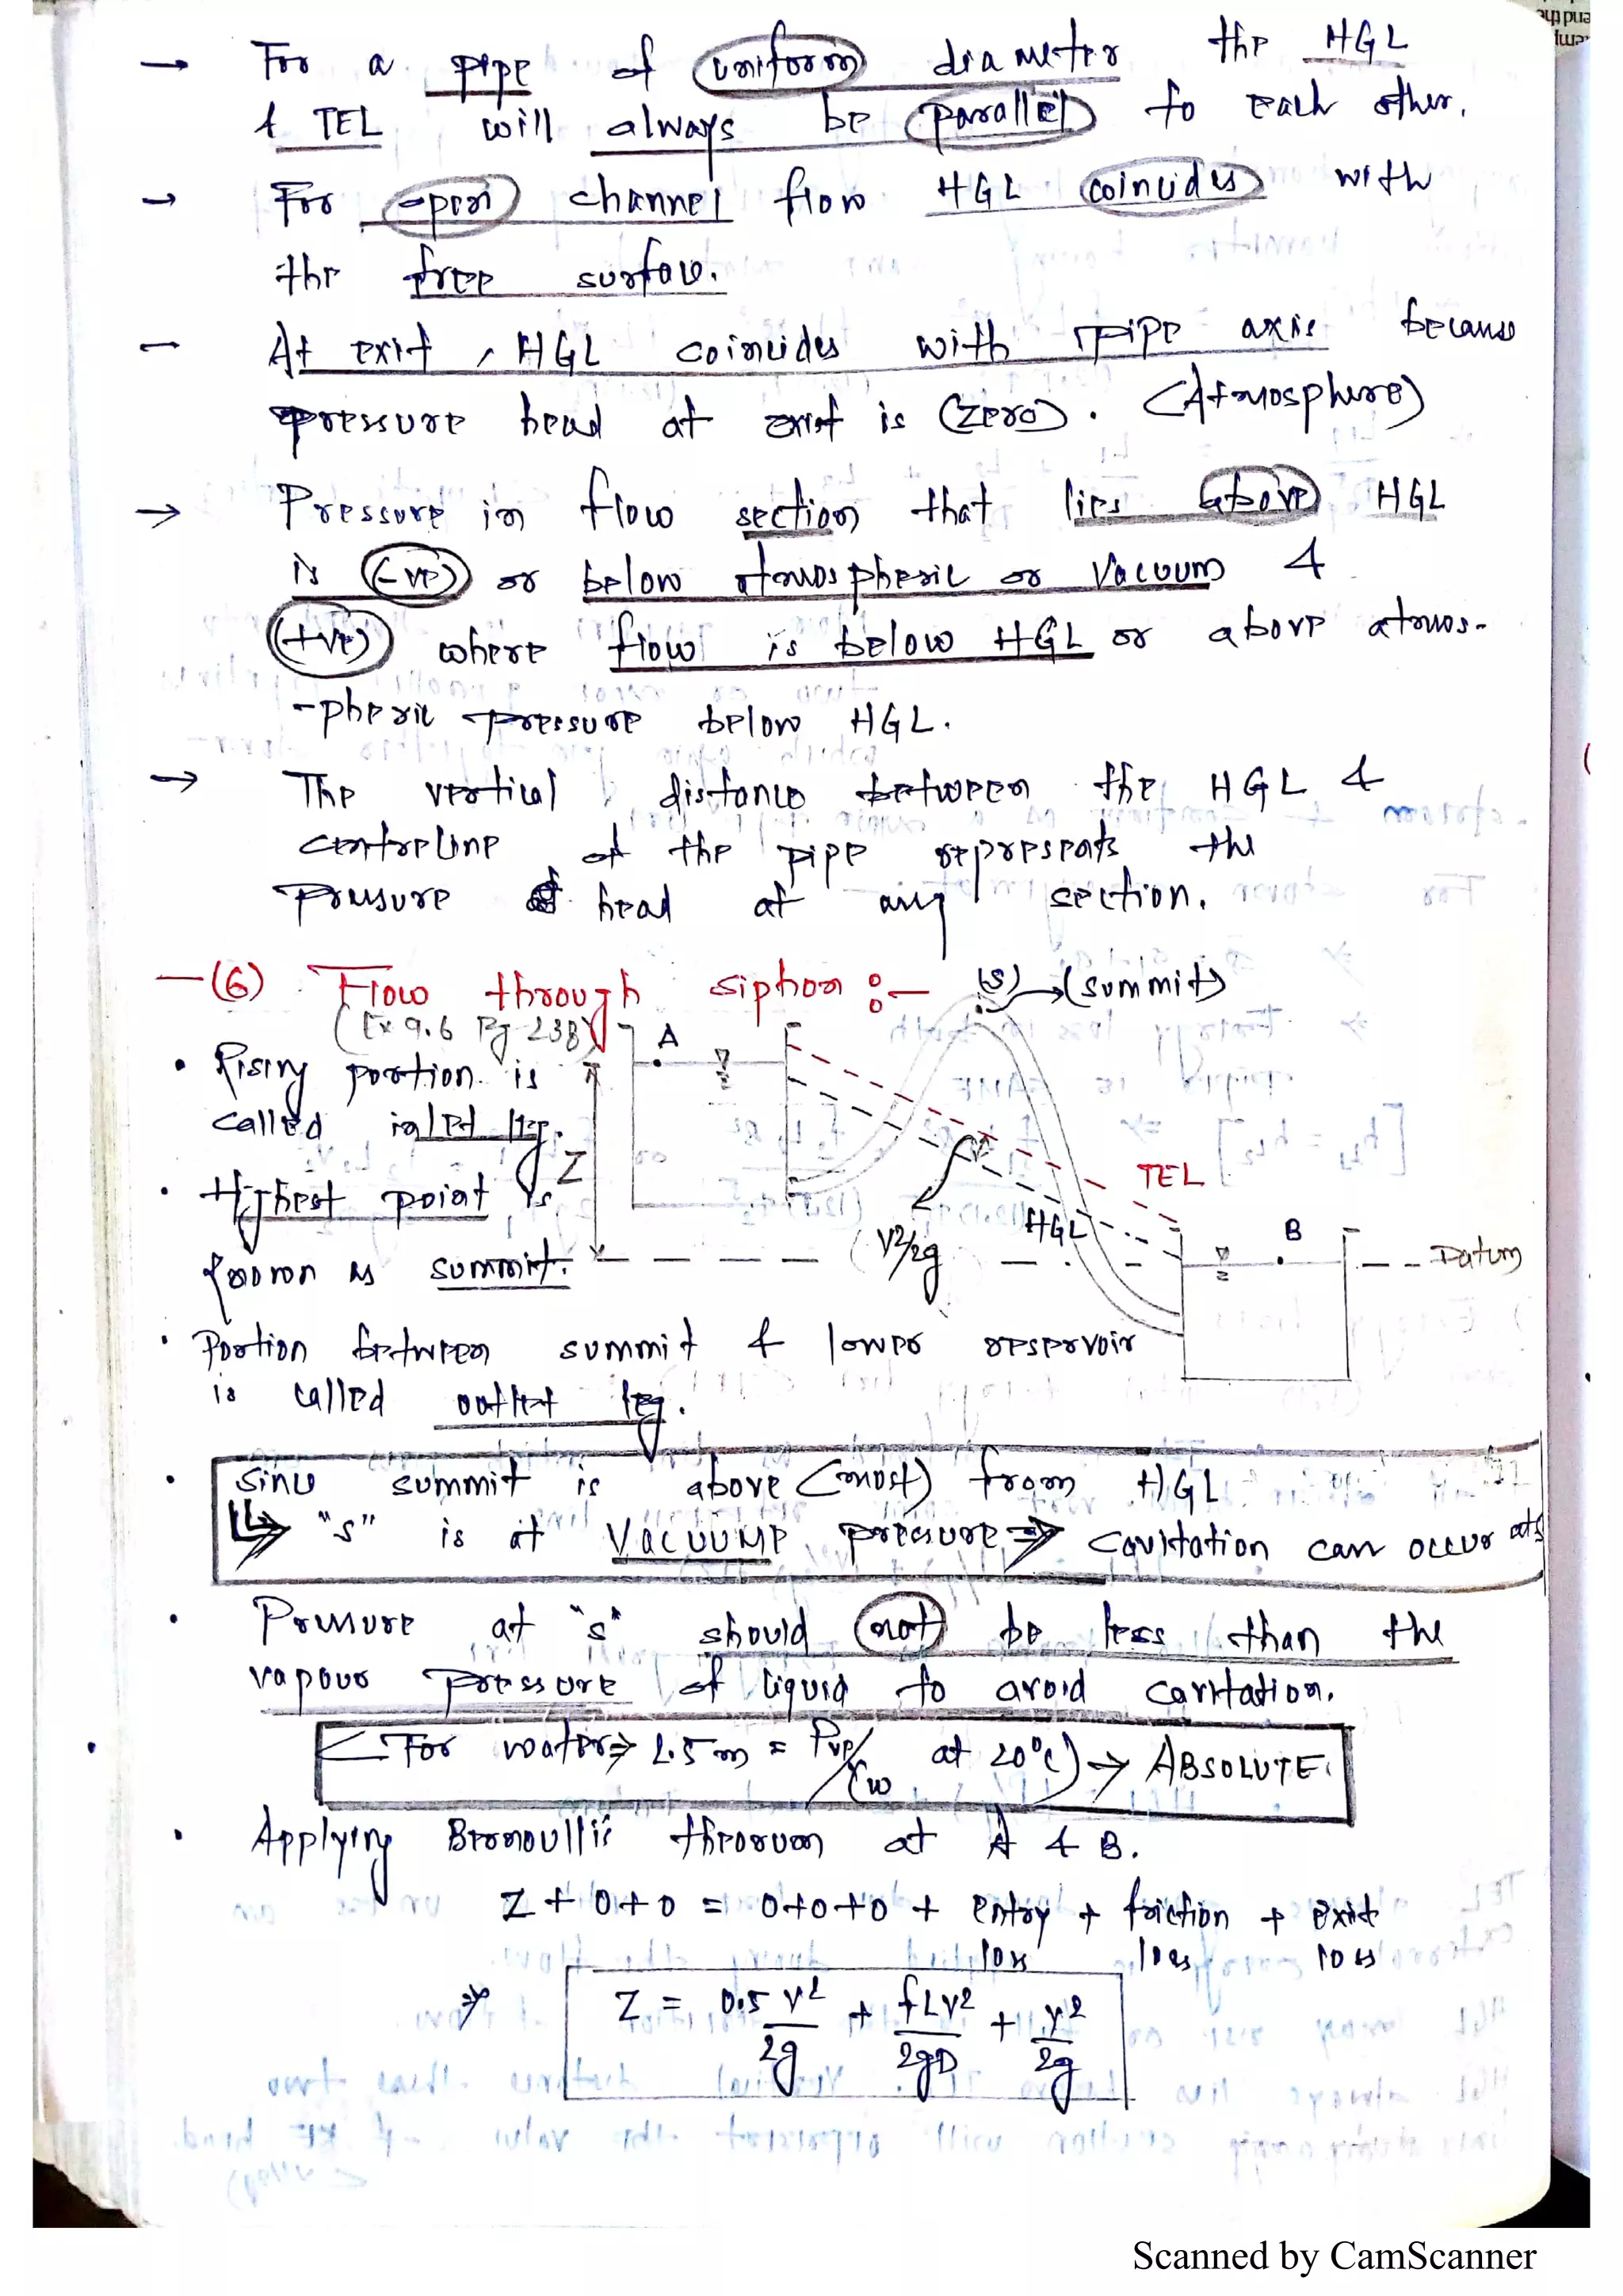 → For a pipe of uniform diameter the HGL
& TEL will always be parallel to each other.
→ For open channel flow HGL coincides with
the free surface.
– At exit, HGL coincides with pipe axis because
pressure head at exit is (zero). (Atmosphere)
→ Pressure in flow section that lies above HGL
is (-ve) or below atmospheric or vacuum &
(+ve) where flow is below HGL or above atmos-
-pheric pressure below HGL.
→ The vertical distance between the HGL &
centreline of the pipe represents the
pressure head at any section.
—(6) Flow through siphon :— (S) → (summit)
(Ex 9.6 Pg 238)
A
• Rising portion is
called inlet leg.
Z
TEL
• Highest point is
known as summit.
HGL
V²/2g
B
Datum
• Portion between summit & lower reservoir
is called outlet leg.
• Since summit is above (most) from HGL
↳ "S" is at VACUUME pressure ⇒ Cavitation can occur at S
• Pressure at "S" should not be less than the
vapour pressure of liquid to avoid cavitation.
• (For water ⇒ 2.5 m = Pvp/γw at 20°C) → ABSOLUTE.
• Applying Bernoulli's theorem at A & B.
Z + 0 + 0 = 0 + 0 + 0 + entry loss + friction loss + exit loss
⇒ Z = 0.5 V²/2g + fLV²/2gD + V²/2g
Scanned by CamScanner